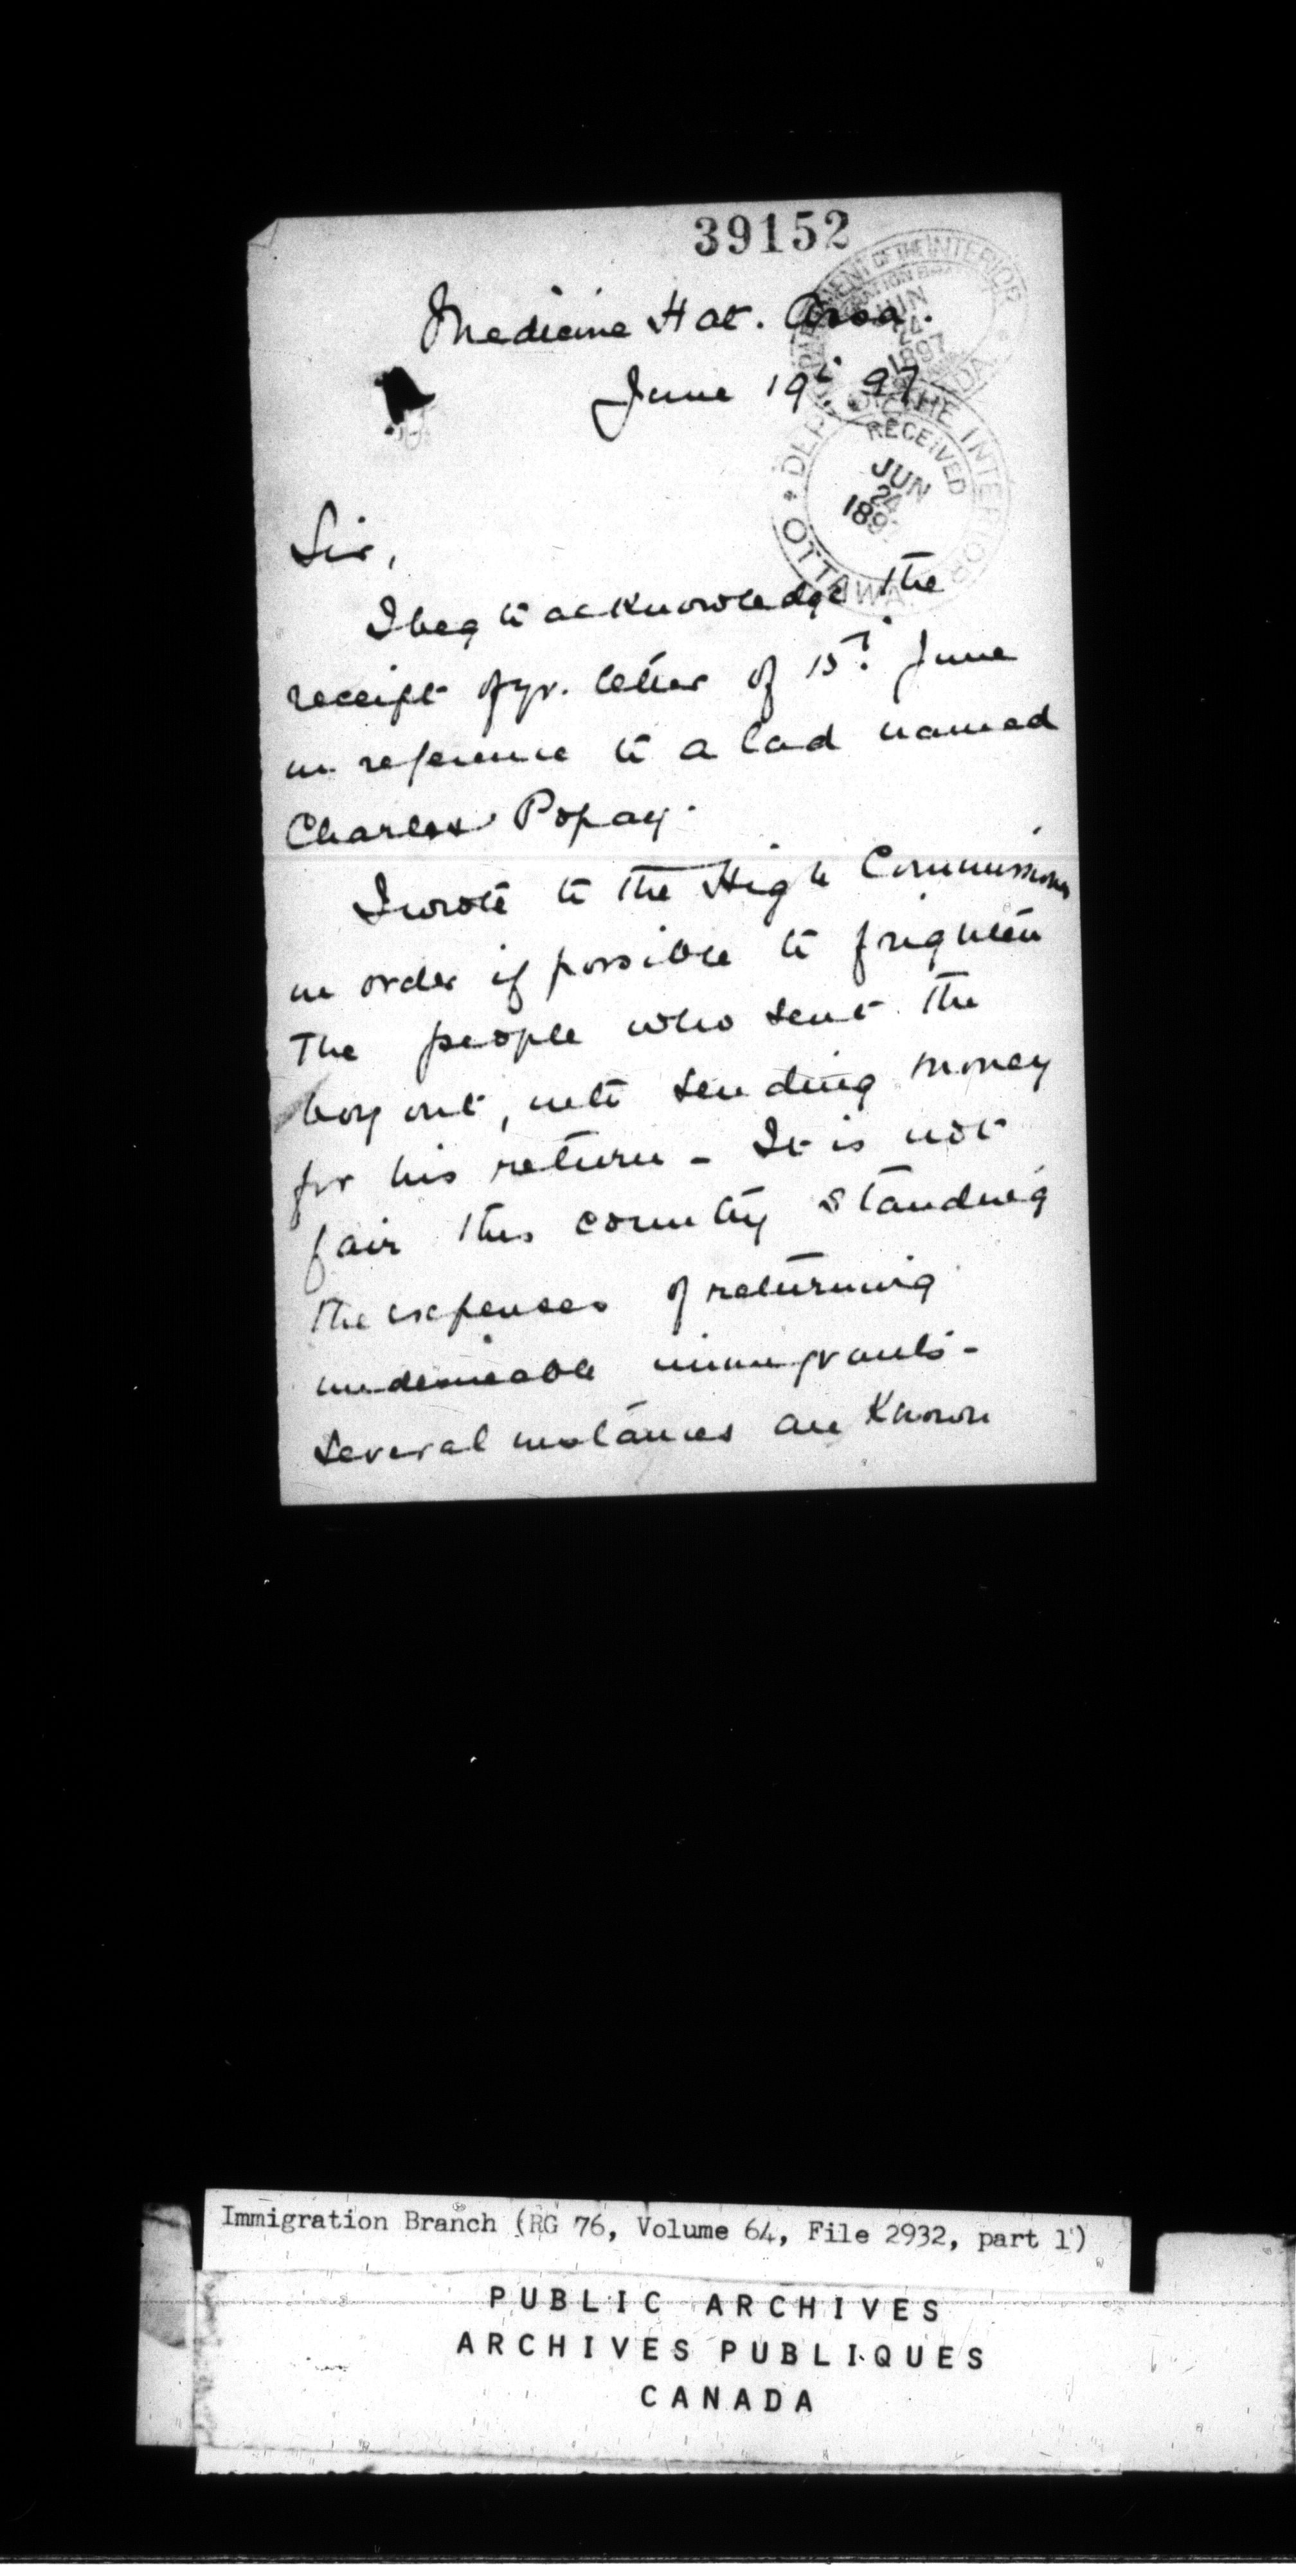 39152
DEPARTMENT OF THE INTERIOR
JUN
24
1897
CANADA
Medicine Hat. Assa.
June 19th 97
DEPT OF THE INTERIOR
RECEIVED
JUN
24
1897
OTTAWA
Sir,
I beg to acknowledge the
receipt of yr. letter of 15th June
in reference to a lad named
Charles Popay.
I wrote to the High Commissioner
in order if possible to frighten
the people who sent the
boy out, into sending money
for his return - It is not
fair this country standing
the expenses of returning
undesirable immigrants -
Several instances are known
Immigration Branch (RG 76, Volume 64, File 2932, part 1)
PUBLIC ARCHIVES
ARCHIVES PUBLIQUES
CANADA